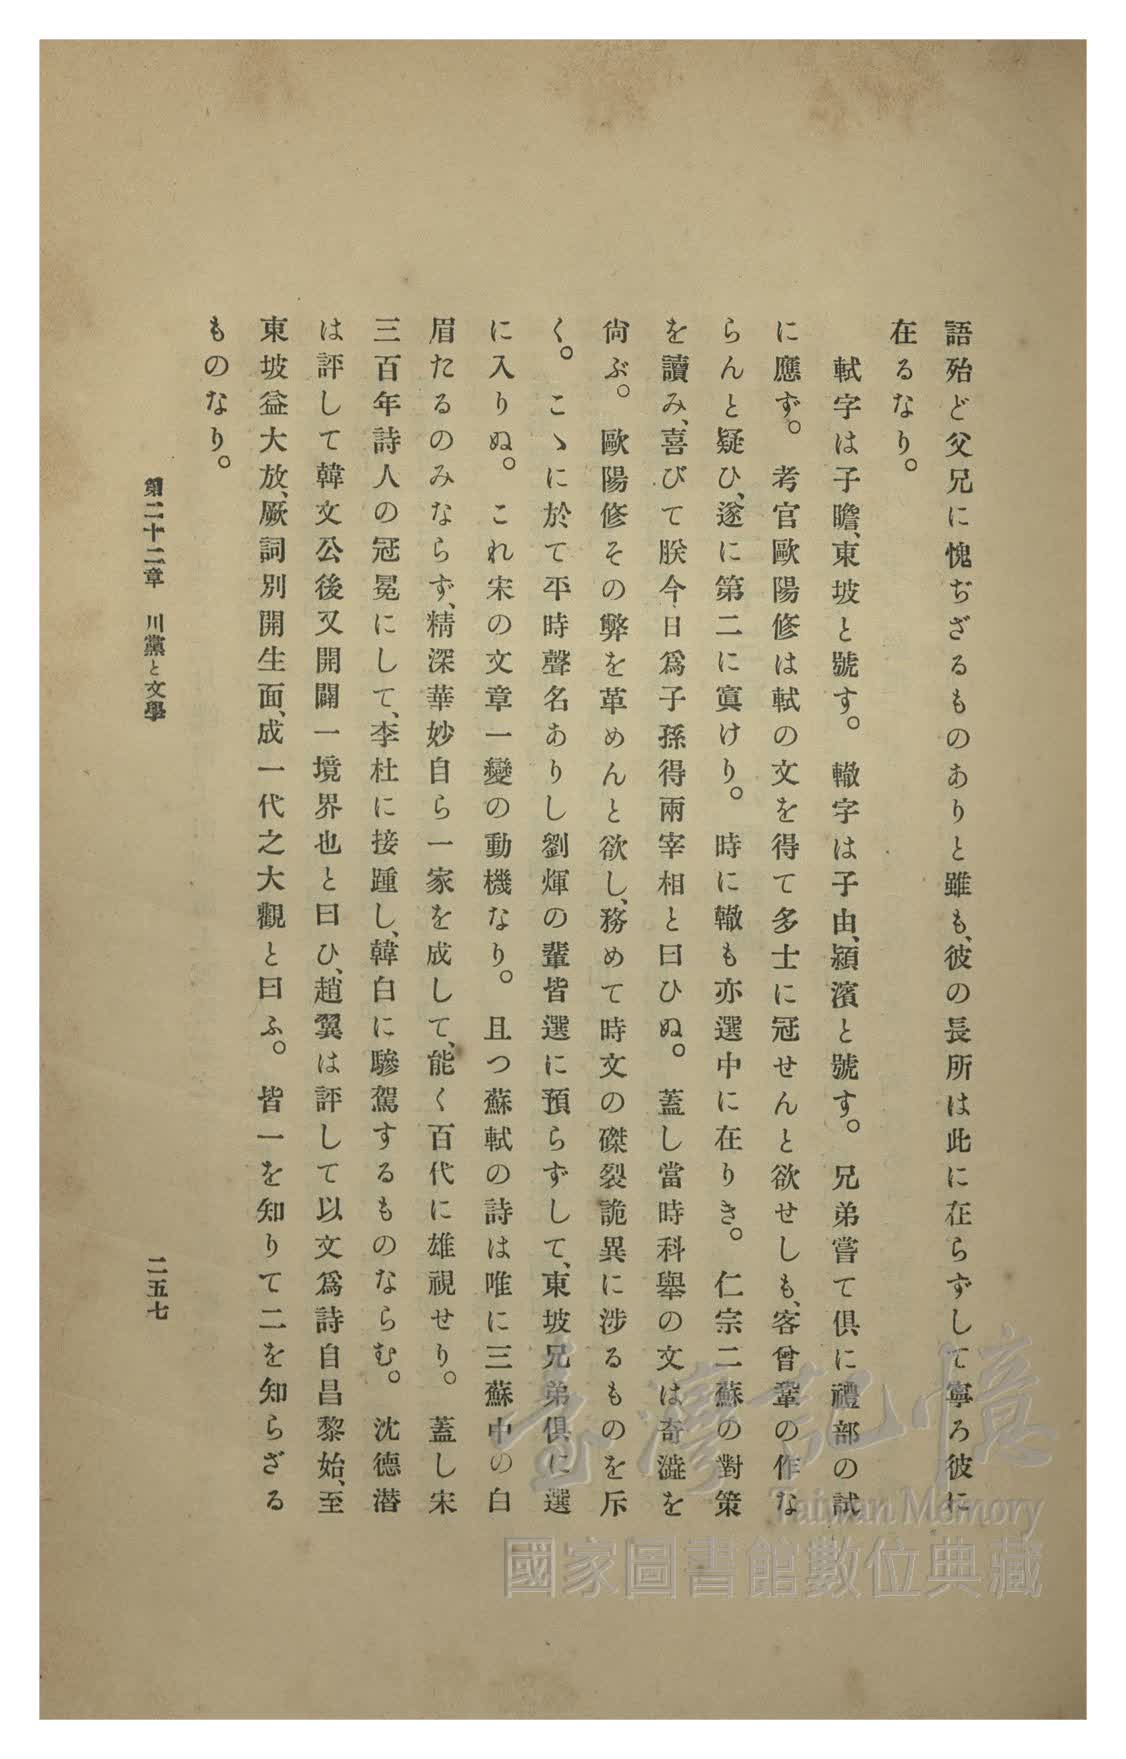 語殆ど父兄に愧ぢざるものありと雖も、彼の長所は此に在らずして寧ろ彼に
在るなり。
軾字は子瞻、東坡と號す。轍字は子由、潁濱と號す。兄弟嘗て俱に禮部の試
に應ず。考官歐陽修は軾の文を得て多士に冠せんと欲せしも、客曾鞏の作な
らんと疑ひ、遂に第二に寘けり。時に轍も亦選中に在りき。仁宗二蘇の對策
を讀み、喜びて朕今日爲子孫得兩宰相と曰ひぬ。蓋し當時科擧の文は奇澁を
尙ぶ。歐陽修その弊を革めんと欲し、務めて時文の磔裂詭異に涉るものを斥
く。こゝに於て平時聲名ありし劉煇の輩皆選に預らずして、東坡兄弟俱に選
に入りぬ。これ宋の文章一變の動機なり。且つ蘇軾の詩は唯に三蘇中の白
眉たるのみならず、精深華妙自ら一家を成して、能く百代に雄視せり。蓋し宋
三百年詩人の冠冕にして、李杜に接踵し、韓白に驂駕するものならむ。沈德潛
は評して韓文公後又開闢一境界也と曰ひ、趙翼は評して以文爲詩自昌黎始、至
東坡益大放、厥詞別開生面、成一代之大觀と曰ふ。皆一を知りて二を知らざる
ものなり。
第二十二章 川黨と文學
二五七
臺灣記憶
Taiwan Memory
國家圖書館數位典藏